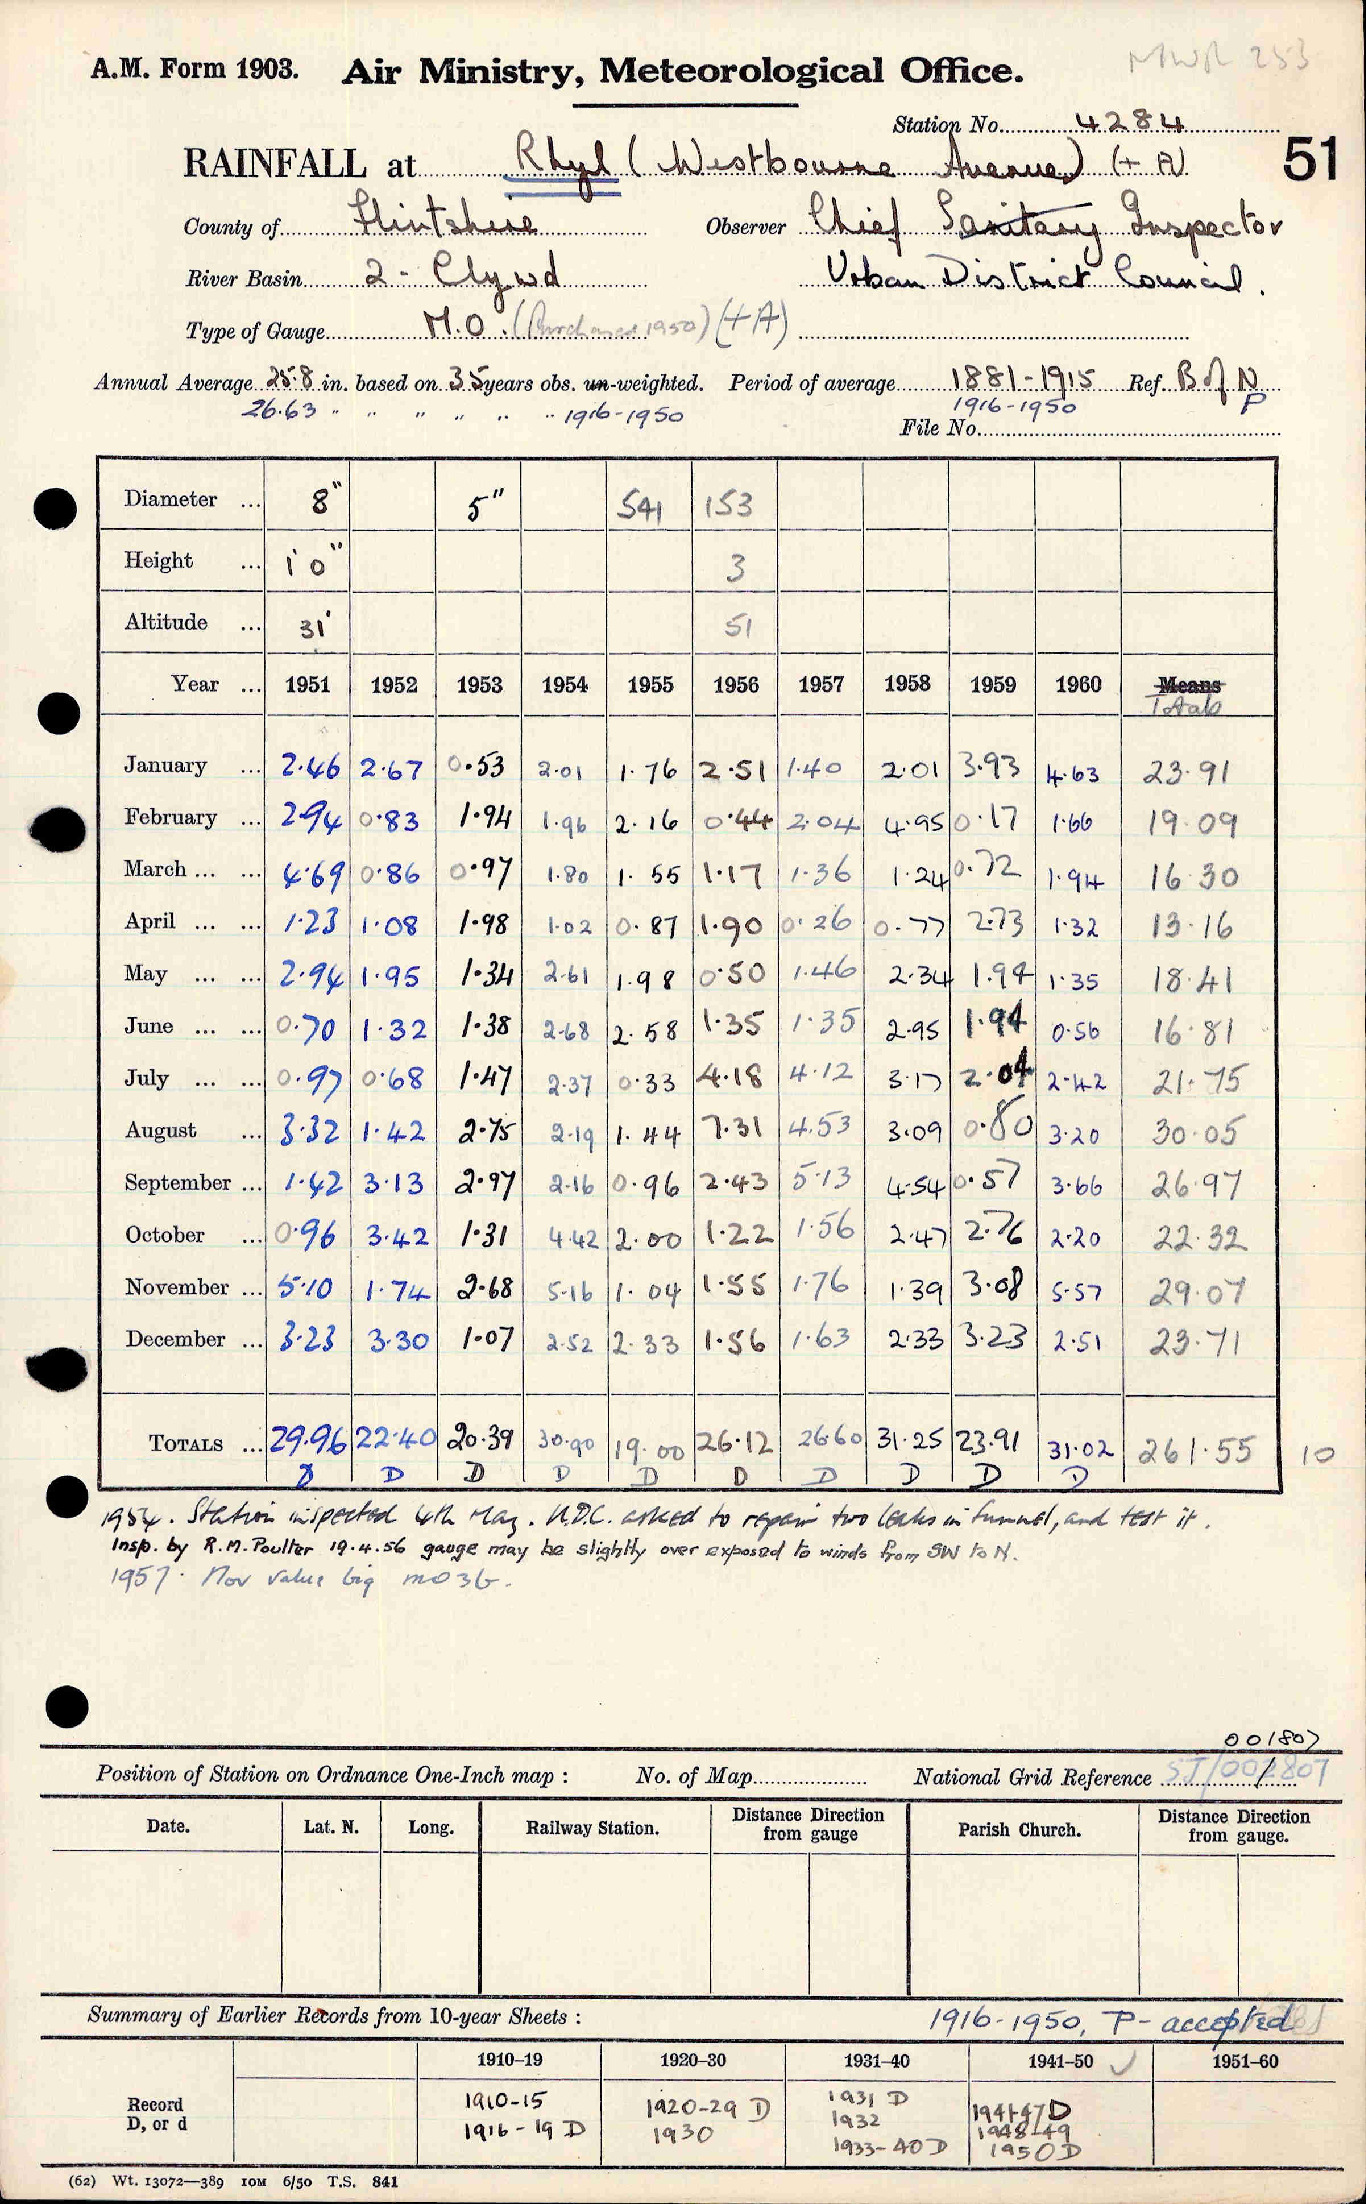 A.M. Form 1903. Air Ministry, Meteorological Office. MWR 253
Station No. 4284
RAINFALL at Rhyl (Westbourne Avenue) (+ A) 51
County of Flintshire Observer Chief Sanitary Inspector
River Basin 2 - Clywd Urban District Council.
Type of Gauge M.O. (Purchased 1950) (+A)
Annual Average 25.8 in. based on 35 years obs. un-weighted. Period of average 1881-1915 Ref. B of N
26.63 " " " " " " 1916-1950 1916-1950 P
File No.
Diameter ... 8" 5" 541 153
Height ... 1' 0" 3
Altitude ... 31' 51
Year ... 1951 1952 1953 1954 1955 1956 1957 1958 1959 1960 Means
Totals
January ... 2.46 2.67 0.53 2.01 1.76 2.51 1.40 2.01 3.93 4.63 23.91
February ... 2.94 0.83 1.94 1.96 2.16 0.44 2.04 4.95 0.17 1.66 19.09
March ... ... 4.69 0.86 0.97 1.80 1.55 1.17 1.36 1.24 0.72 1.94 16.30
April ... ... 1.23 1.08 1.98 1.02 0.87 1.90 0.26 0.77 2.73 1.32 13.16
May ... ... 2.94 1.95 1.34 2.61 1.98 0.50 1.46 2.34 1.94 1.35 18.41
June ... ... 0.70 1.32 1.38 2.68 2.58 1.35 1.35 2.95 1.94 0.56 16.81
July ... ... 0.97 0.68 1.47 2.37 0.33 4.18 4.12 3.17 2.04 2.42 21.75
August ... 3.32 1.42 2.75 2.19 1.44 7.31 4.53 3.09 0.80 3.20 30.05
September ... 1.42 3.13 2.97 2.16 0.96 2.43 5.13 4.54 0.57 3.66 26.97
October ... 0.96 3.42 1.31 4.42 2.00 1.22 1.56 2.47 2.76 2.20 22.32
November ... 5.10 1.74 2.68 5.16 1.04 1.55 1.76 1.39 3.08 5.57 29.07
December ... 3.23 3.30 1.07 2.52 2.33 1.56 1.63 2.33 3.23 2.51 23.71
TOTALS ... 29.96 22.40 20.39 30.90 19.00 26.12 26.60 31.25 23.91 31.02 261.55 10
D D D D D D D D D D
1954. Station inspected 4th May. U.D.C. asked to repair two leaks in funnel, and test it.
Insp. by R.M. Poulter 19.4.56 gauge may be slightly over exposed to winds from SW to N.
1957. Nov value big
001807
Position of Station on Ordnance One-Inch map : No. of Map National Grid Reference SJ/002807
Date. Lat. N. Long. Railway Station. Distance Direction from gauge Parish Church. Distance Direction from gauge.
Summary of Earlier Records from 10-year Sheets : 1916-1950, P - accepted
1910–19 1920–30 1931–40 1941–50 ✓ 1951–60
Record D, or d
1910-15 1920-29 D 1931 D 1941-47 D
1916-19 D 1930 1932 1948-49
1933-40 D 1950 D
(62) Wt. 13072—389 10M 6/50 T.S. 841